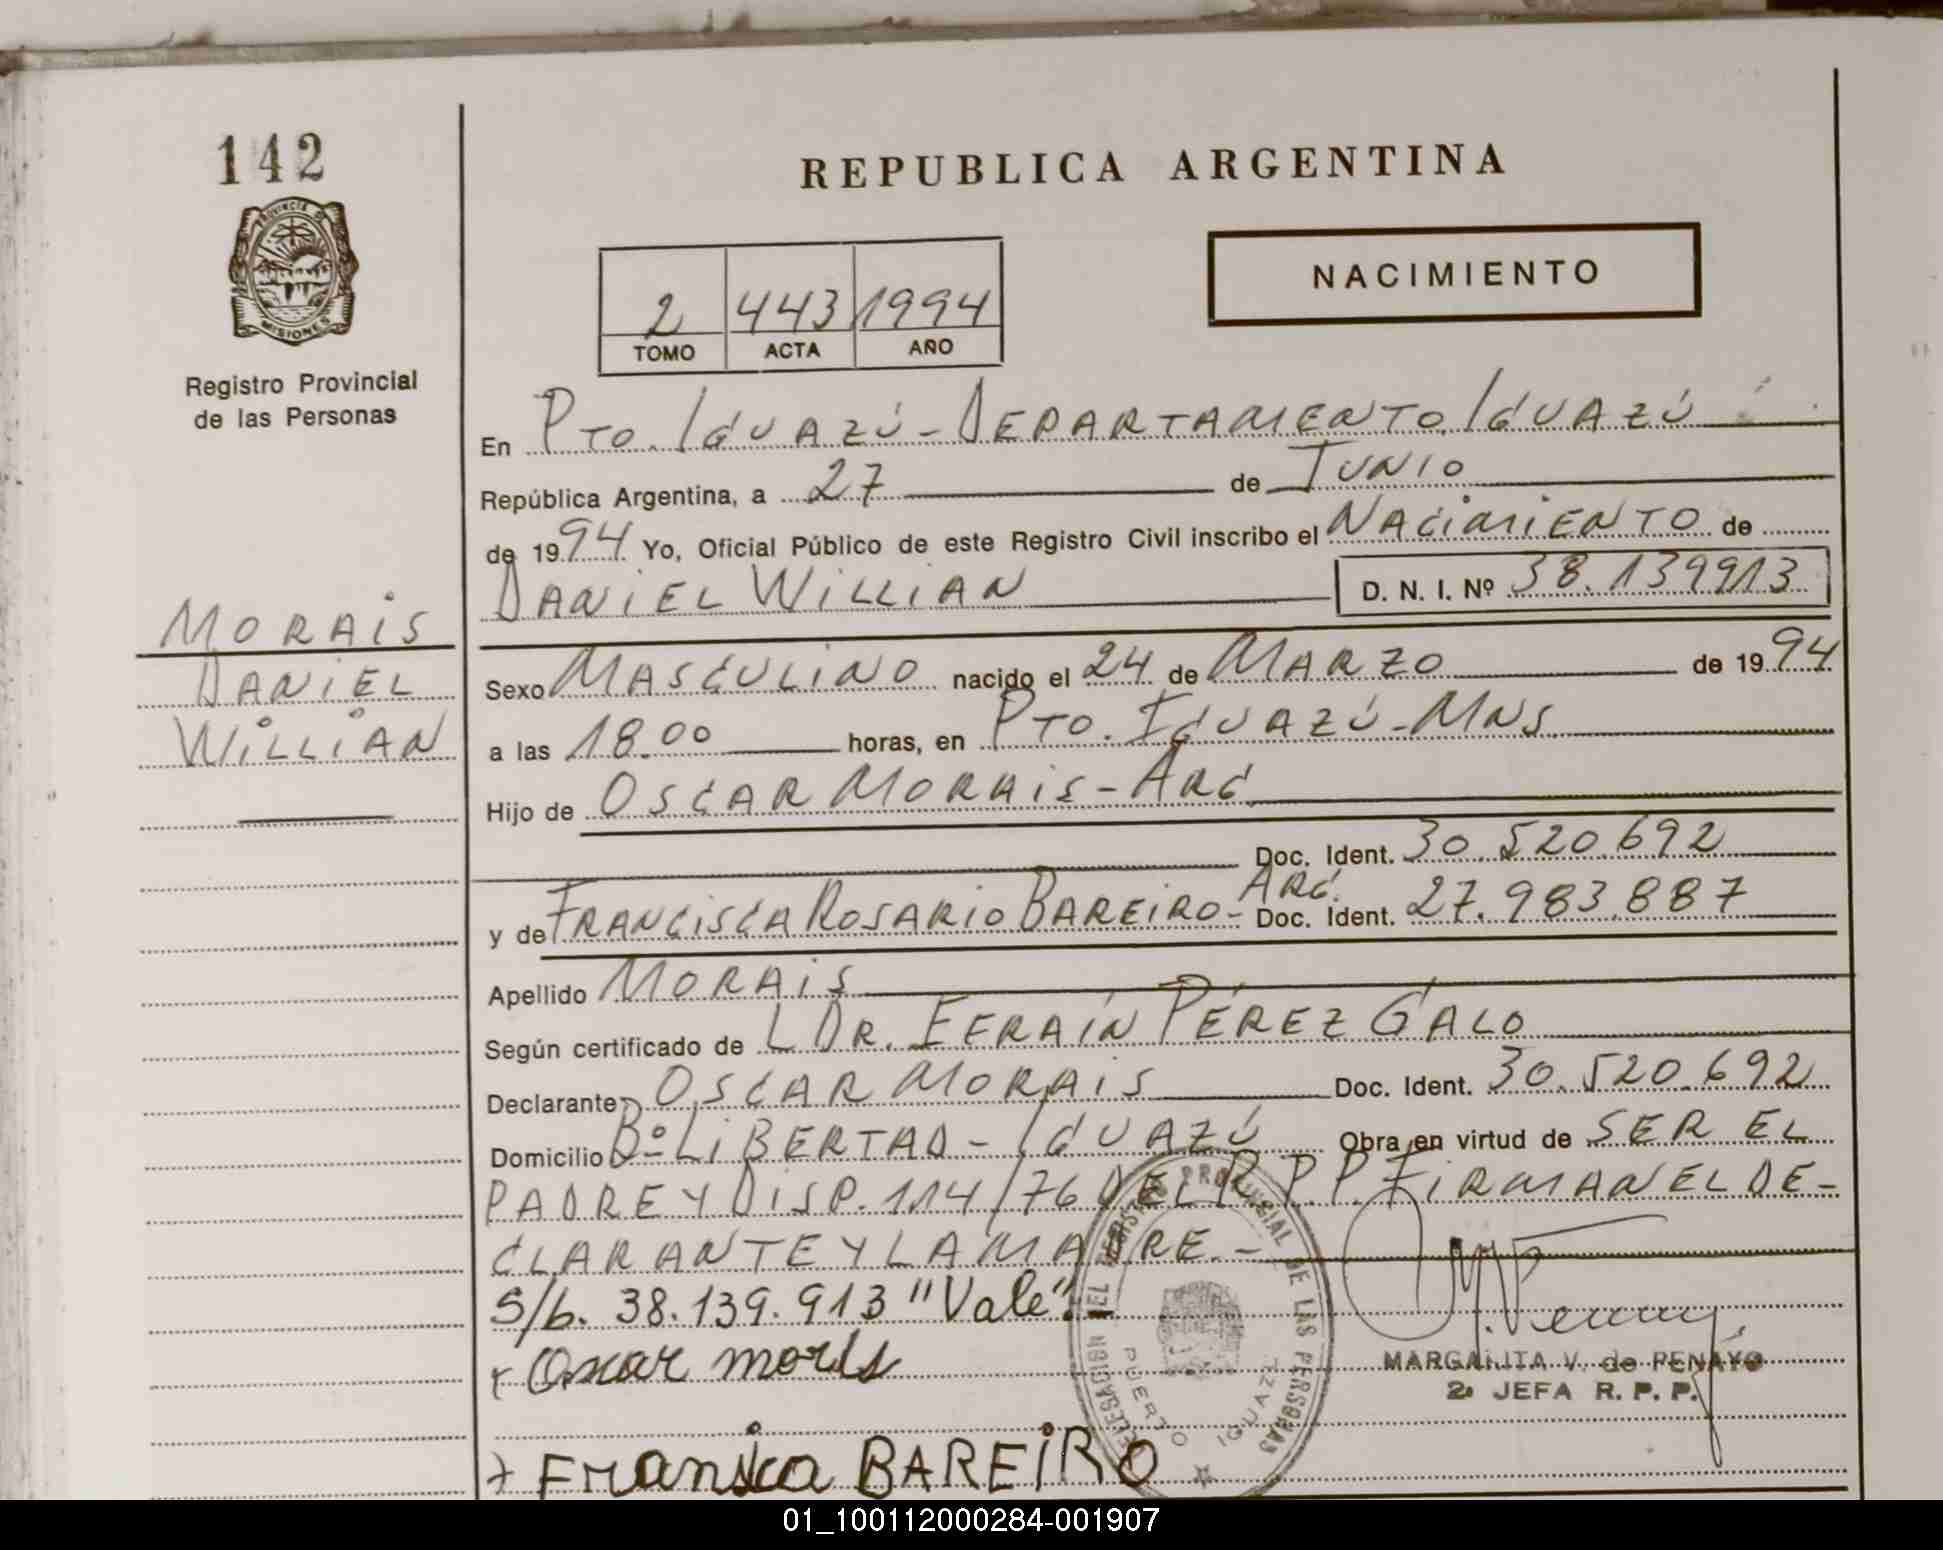 142
PROVINCIA DE
MISIONES
Registro Provincial
de las Personas
MORAIS
DANIEL
WILLIAN
REPUBLICA ARGENTINA
NACIMIENTO
2 443 1994
TOMO ACTA AÑO
En PTO. IGUAZÚ - DEPARTAMENTO IGUAZÚ
República Argentina, a 27 de JUNIO
de 1994 Yo, Oficial Público de este Registro Civil inscribo el NACIMIENTO de
DANIEL WILLIAN D. N. I. Nº 38.139913
Sexo MASCULINO nacido el 24 de MARZO de 1994
a las 18.00 horas, en PTO. IGUAZÚ - MNS
Hijo de OSCAR MORAIS - ARG
Doc. Ident. 30.520.692
y de FRANCISCA ROSARIO BAREIRO - ARG. Doc. Ident. 27.983.887
Apellido MORAIS
Según certificado de L DR. EFRAÍN PÉREZ GALO
Declarante OSCAR MORAIS Doc. Ident. 30.520.692
Domicilio Bº LIBERTAD - IGUAZÚ Obra en virtud de SER EL
PADRE Y DISP. 114/76 DEL R.P.P. FIRMAN EL DE-
CLARANTE Y LA MADRE. -
S/b. 38.139.913 "Vale". -
Oscar morls
Fransica BAREIRO
DELEGACION DEL REGISTRO PROVINCIAL DE LAS PERSONAS
PUERTO IGUAZU
MARGARITA V. de PENAYO
2a JEFA R. P. P.
01_100112000284-001907